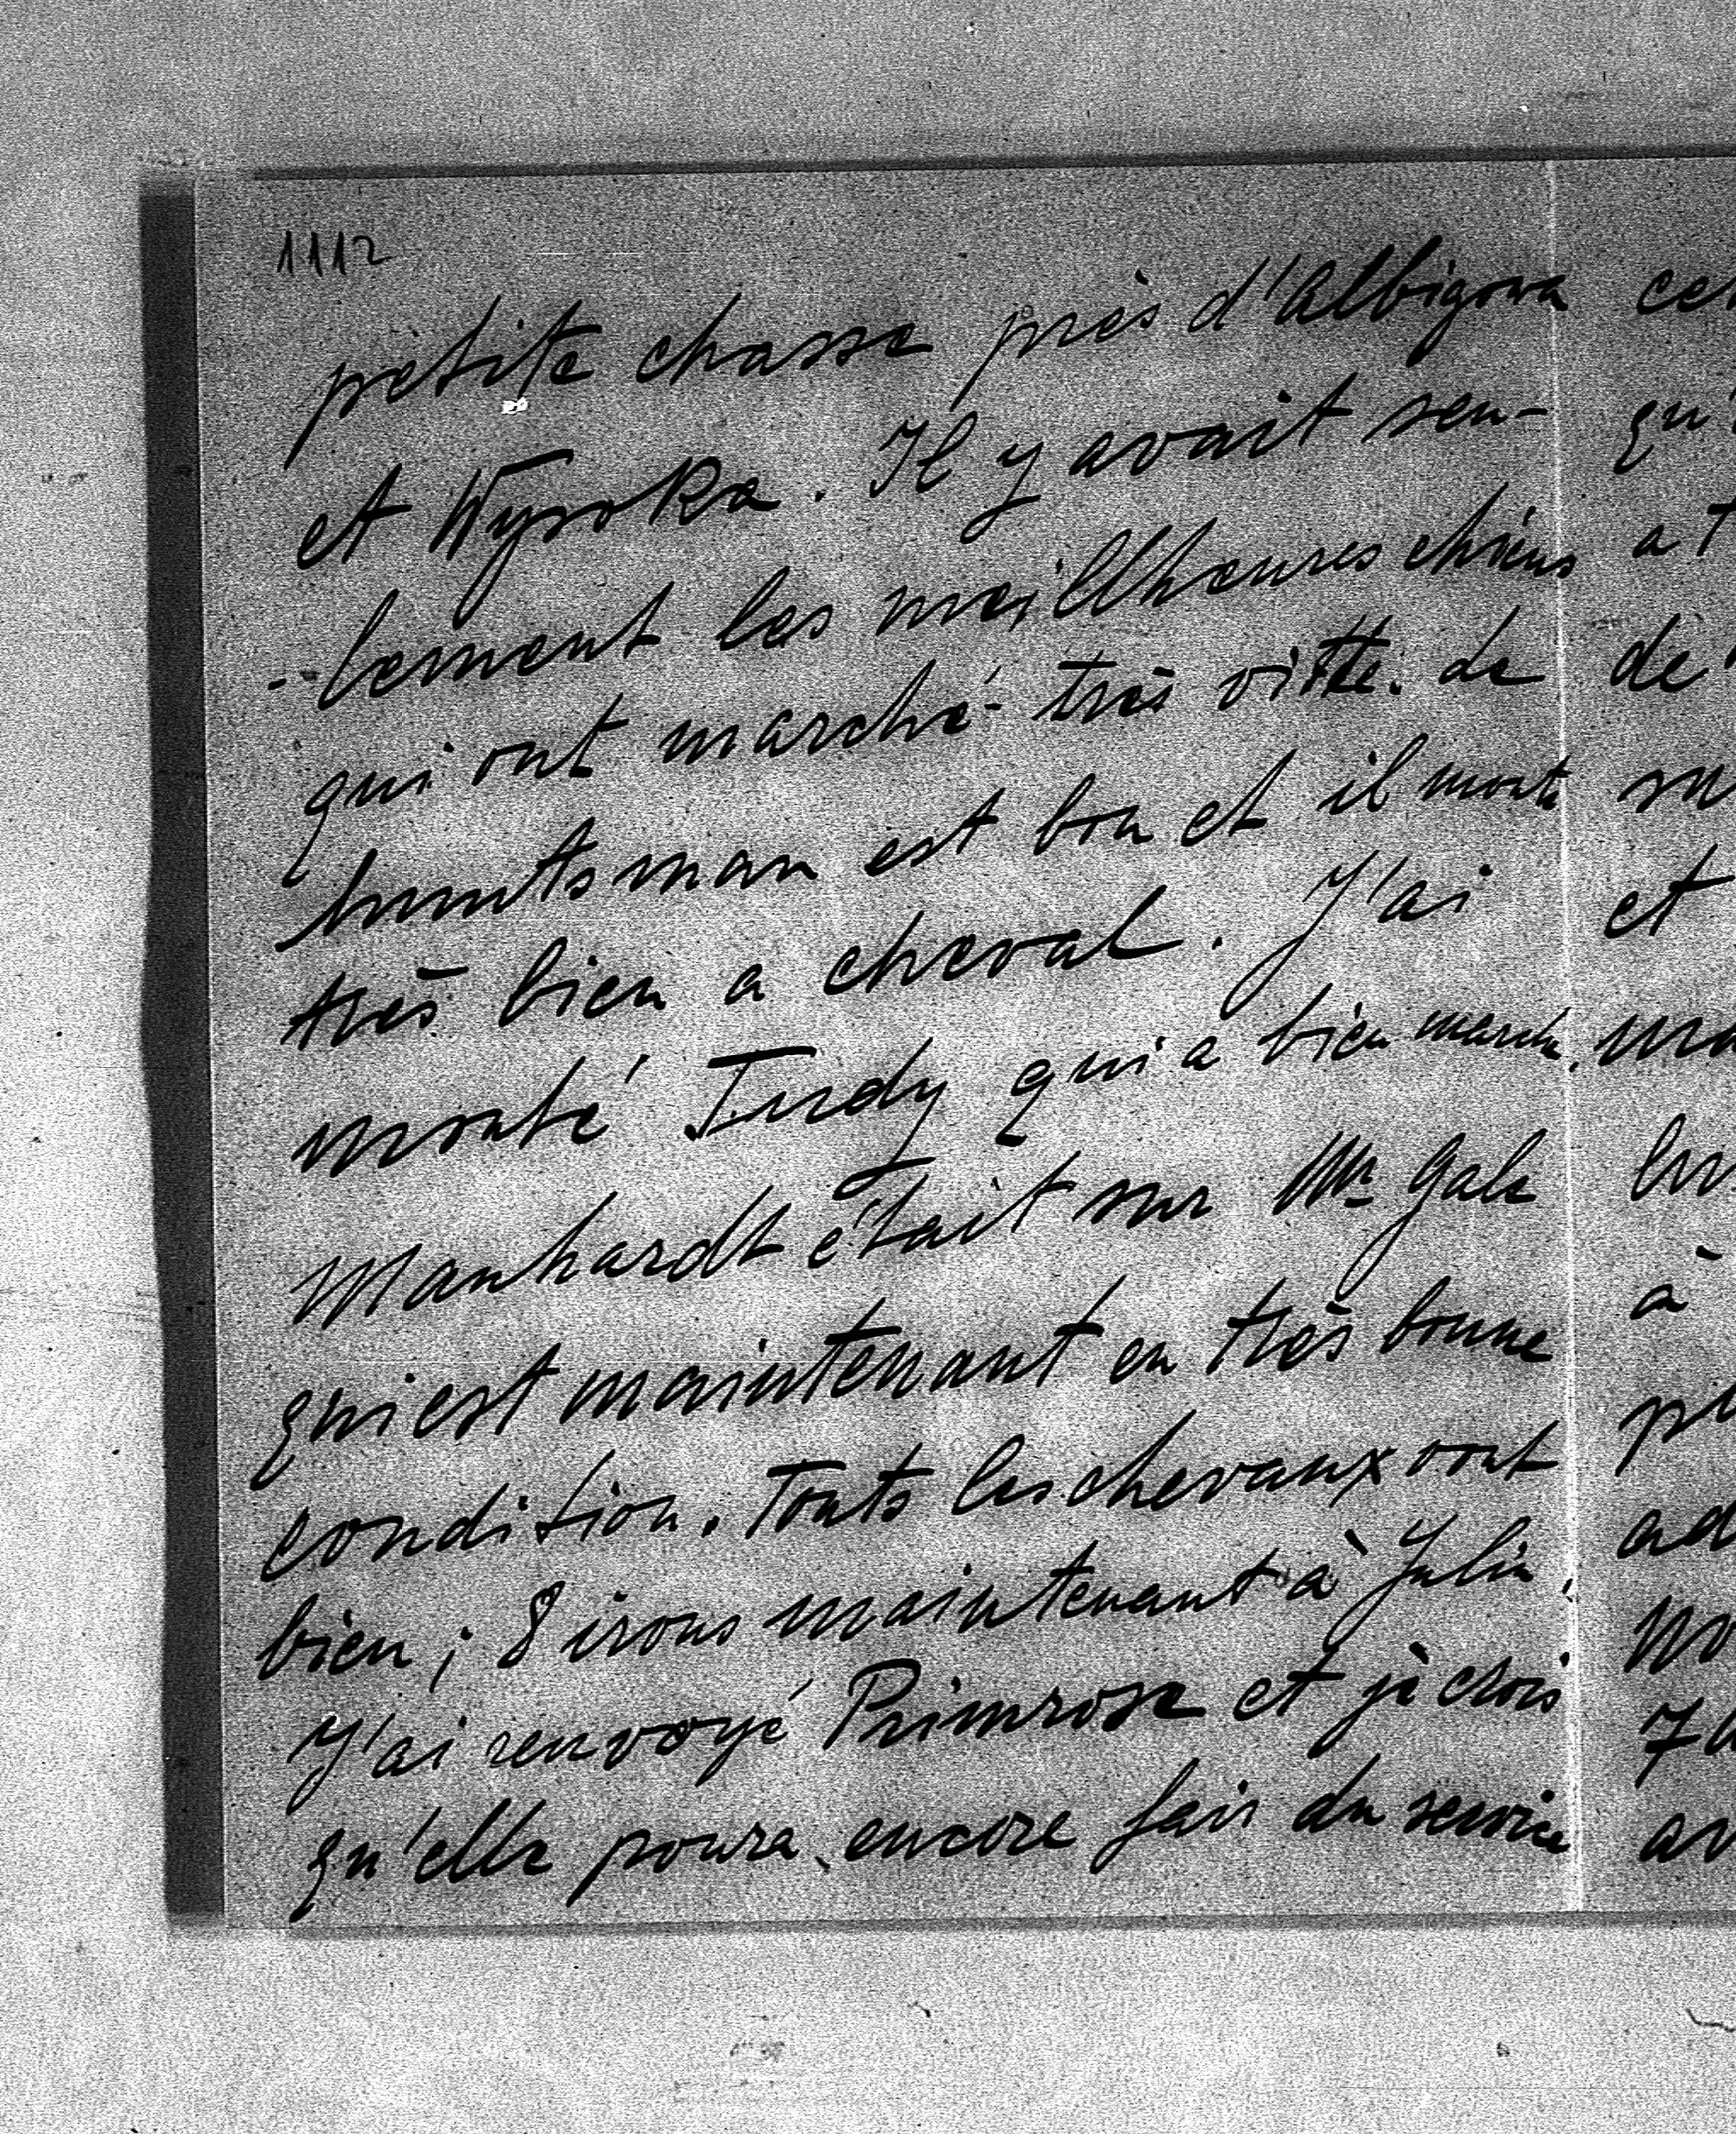 1112
petite chasse près d'Albigowa
et Wysoka. Il y avait seu-
-lement les meillheures chiens
qui ont marché très vitte. de
huntsman est bon et il monte
très bien a cheval. J'ai
monté Tirdy qui a bien marché.
Manhardt était sur Mr Gale
qui est maintenant en très bonne
condition. Touts les chevaux vont
bien; 8 irons maintenant à Julin.
J'ai renvoyé Primrose et jè crois
qu'elle poura encore fair du service
et
à